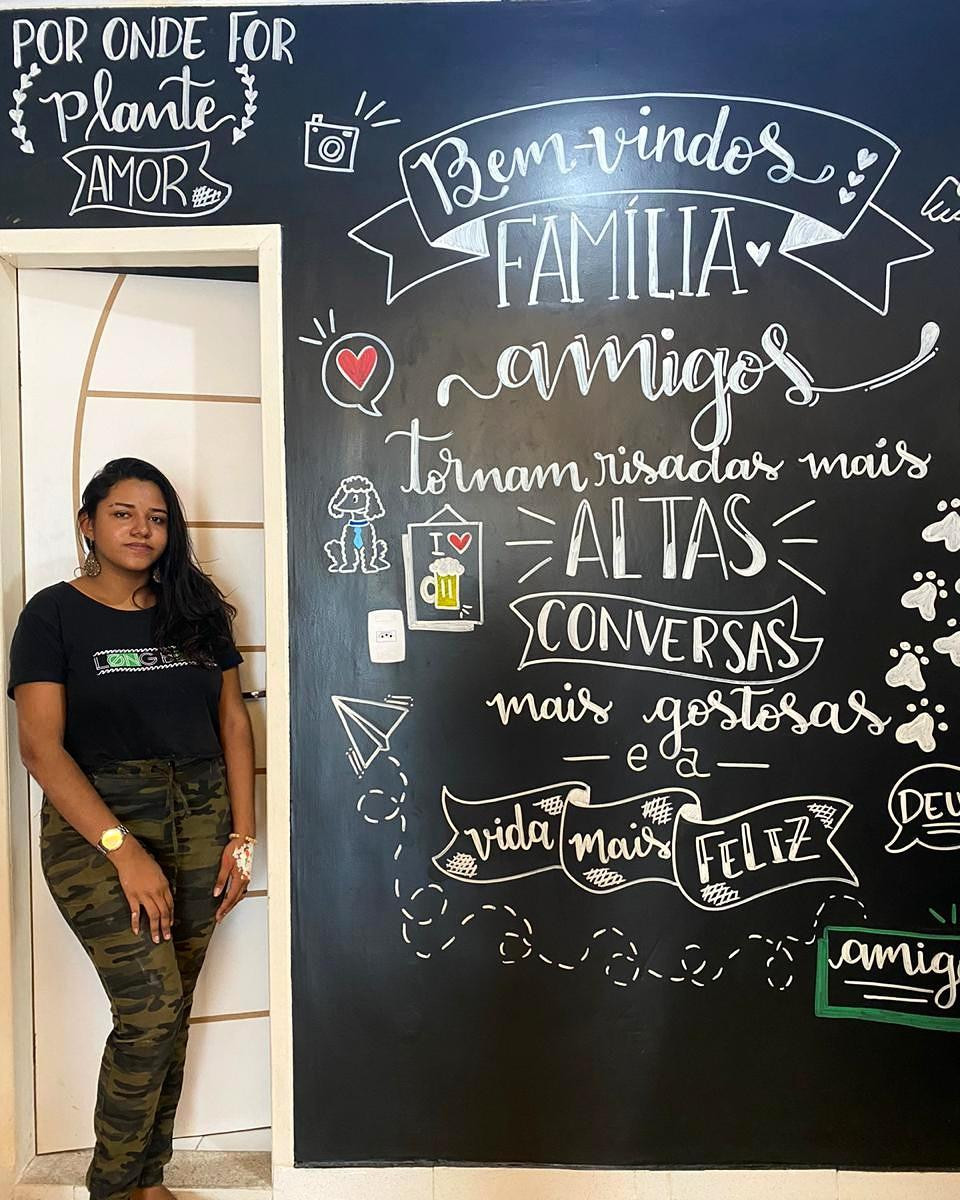 POR ONDE FOR
plante
AMOR
Bem-vindos
FAMÍLIA
amigos
tornam risadas mais
ALTAS
I
CONVERSAS
mais gostosas
e a
vida mais FELIZ
LONG